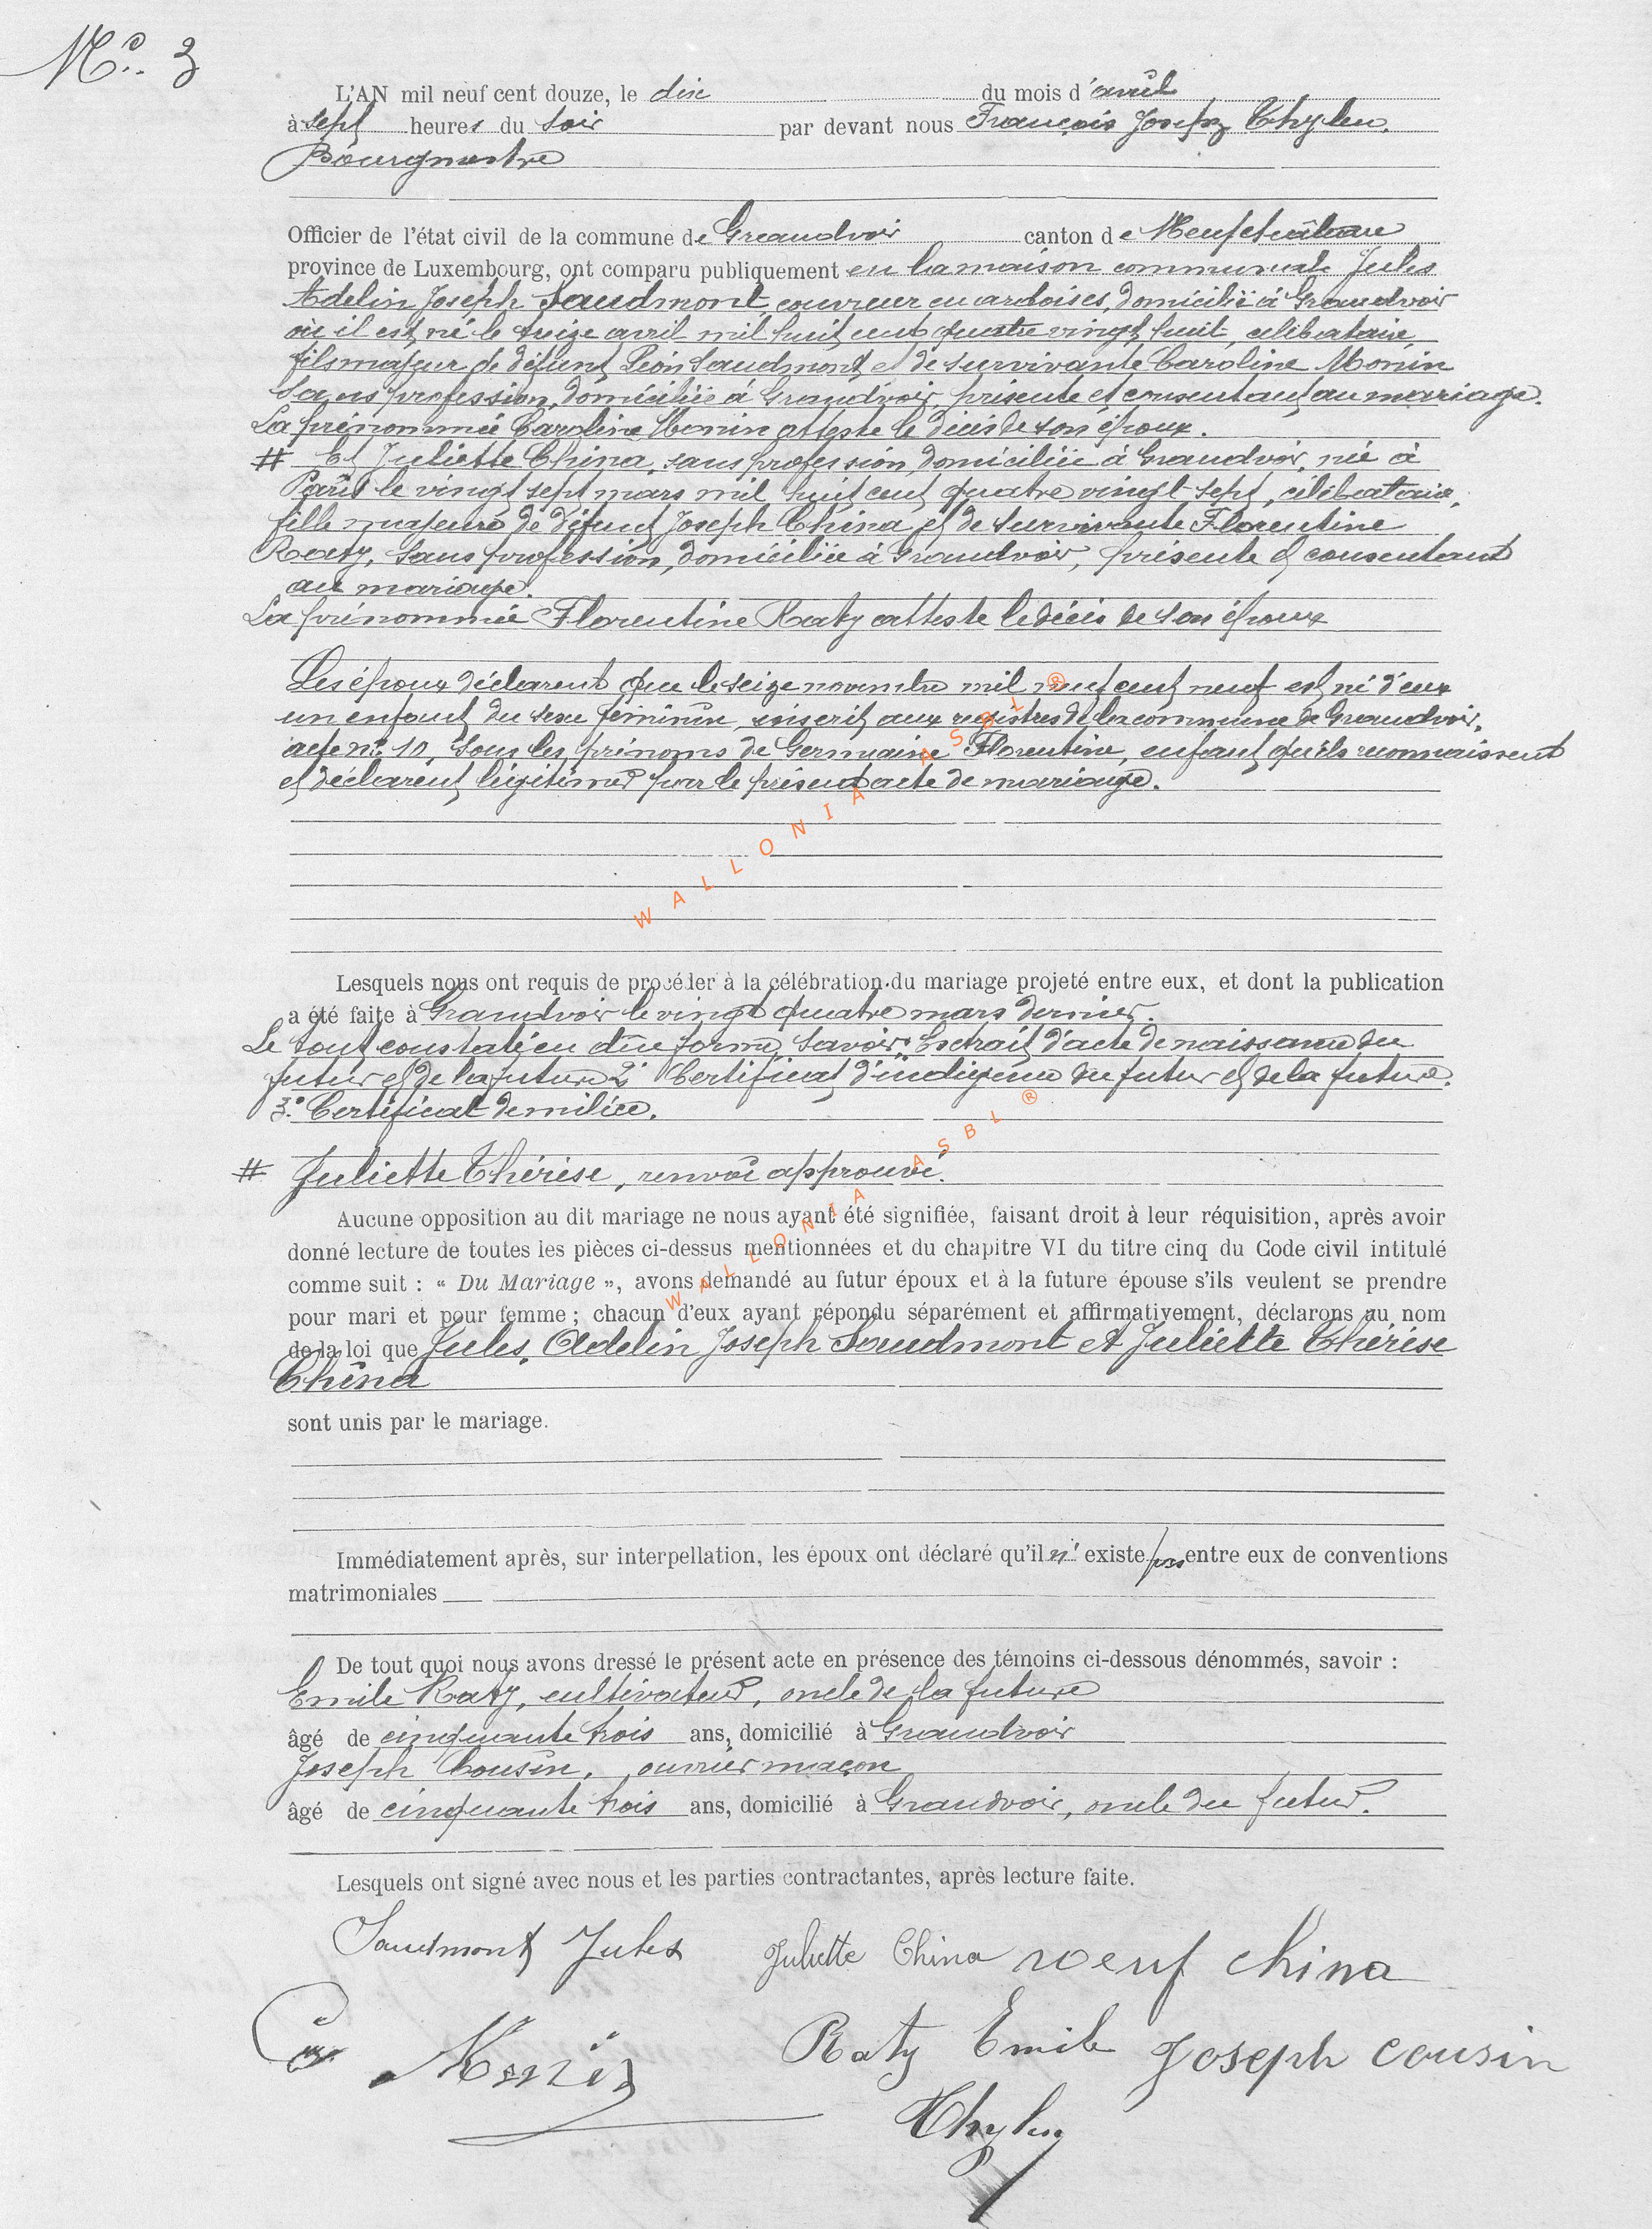 No. 3
L'AN mil neuf cent douze, le dix du mois d'avril
à sept heures du soir par devant nous François Joseph Thylen.
Bourgmestre
Officier de l'état civil de la commune de Grandvoir canton de Neufchâteau
province de Luxembourg, ont comparu publiquement en la maison communale Jules
Adelin Joseph Saudmont, couvreur en ardoises, domicilié à Grandvoir
où il est né le treize avril mil huit cent quatre vingt huit, célibataire,
fils majeur de défunt Léon Saudmont et de survivante Caroline Monin
Sans profession, domiciliée à Grandvoir, présente et consentant au mariage.
La prénommée Caroline Monin atteste le décès de son époux.
# Et Juliette China, sans profession, domiciliée à Grandvoir, née à
Paris le vingt sept mars mil huit cent quatre vingt sept, célibataire,
fille majeure de défunt Joseph China et de survivante Florentine
Raty, sans profession, domiciliée à Grandvoir, présente et consentant
au mariage.
La prénommée Florentine Raty atteste le décès de son époux
Les époux déclarent que le seize novembre mil neuf cent neuf est né d'eux
un enfant du sexe féminin, inscrit aux registres de la commune de Grandvoir,
acte no 10, sous les prénoms de Germaine Florentine, enfant qu'ils reconnaissent
et déclarent légitimer par le présent acte de mariage.
WALLONIA ASBL ®
Lesquels nous ont requis de procéder à la célébration du mariage projeté entre eux, et dont la publication
a été faite à Grandvoir le vingt quatre mars dernier.
Le tout constaté en due forme, savoir: Extrait d'acte de naissance du
futur et de la future 2° Certificat d'indigence du futur et de la future.
3° Certificat de milice.
# Juliette Thérèse, renvoi approuvé.
WALLONIA ASBL ®
Aucune opposition au dit mariage ne nous ayant été signifiée, faisant droit à leur réquisition, après avoir
donné lecture de toutes les pièces ci-dessus mentionnées et du chapitre VI du titre cinq du Code civil intitulé
comme suit : « Du Mariage », avons demandé au futur époux et à la future épouse s'ils veulent se prendre
pour mari et pour femme ; chacun d'eux ayant répondu séparément et affirmativement, déclarons au nom
de la loi que Jules, Adelin Joseph Saudmont et Juliette Thérèse
China
sont unis par le mariage.
Immédiatement après, sur interpellation, les époux ont déclaré qu'il n'existe pas entre eux de conventions
matrimoniales
De tout quoi nous avons dressé le présent acte en présence des témoins ci-dessous dénommés, savoir :
Emile Raty, cultivateur, oncle de la future
âgé de cinquante trois ans, domicilié à Grandvoir
Joseph Cousin, ouvrier maçon
âgé de cinquante trois ans, domicilié à Grandvoir, oncle du futur.
Lesquels ont signé avec nous et les parties contractantes, après lecture faite.
Saudmont Jules Juliette China veuf China
Ca Monin Raty Emile Joseph Cousin
Thylen